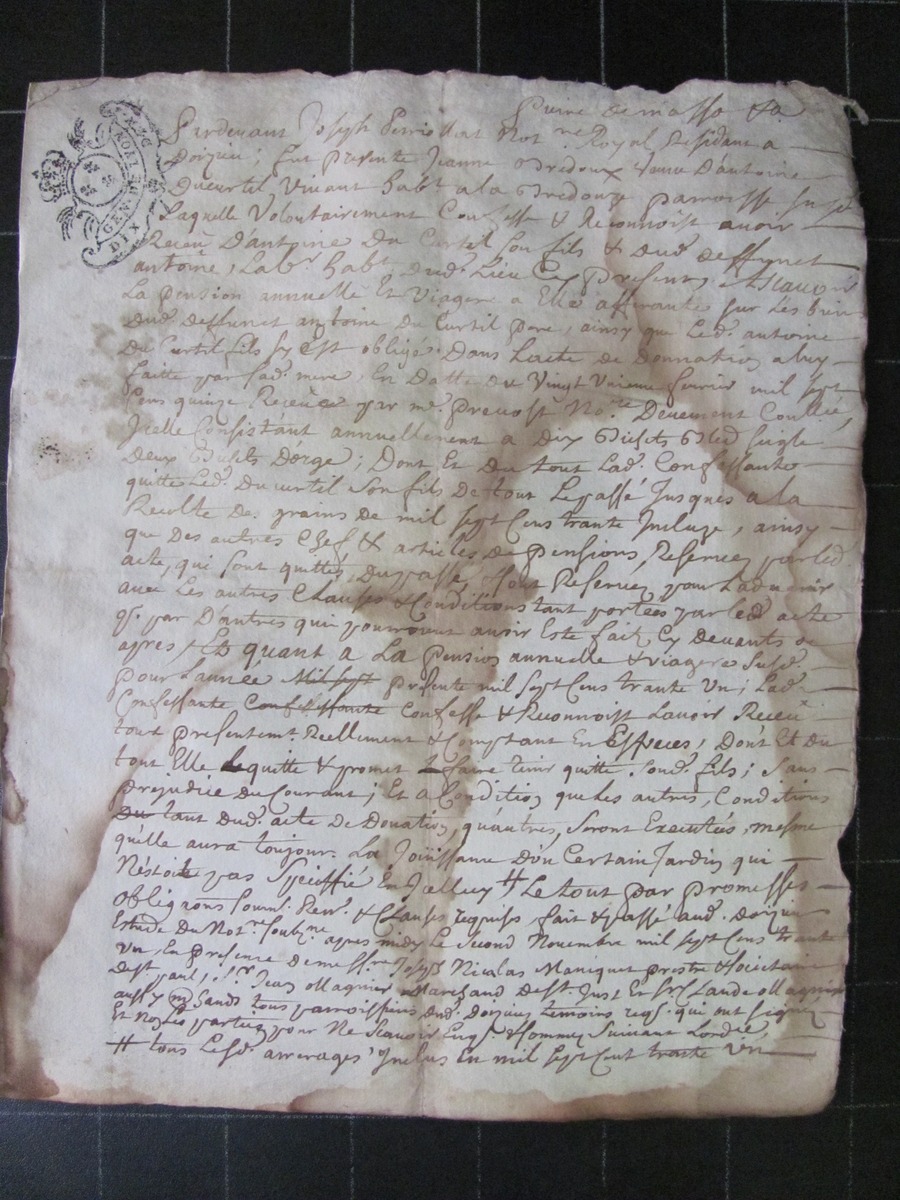 GEN. DE LYON
DIX DEN.
Pardevant Joseph Not.re Royal Résidant a
Doizieu; fut presente Jeanne Bredoux veuve D'antoine
Ducurtil vivant hab.t a la Bredouze parroisse
Laquelle Volontairement Confesse & Reconnoist avoir
Receu D'antoine Du Curtil son fils & dud. deffunct
antoine, Lab.r hab.t dud. Lieu Cy present, Scavoir
La pension annuelle Et Viagere a Elle afferante sur Les biens
dud. deffunct antoine Du Curtil pere, ainsy que Led. antoine
Du Curtil fils sy Est obligé Dans Lacte de Donnation a luy
faitte par lad. mere, En Datte du Vingt Unieme fevrier mil sept
Cens quinze Receue par m.e Prevost No.re Deuement Conllé,
Icelle Consistant annuellement a Dix Bichets Bled seigle
Deux Bichets D'orge; Dont Et du tout Lad. Confessante
quitte Led. Ducurtil son fils De tout Le passé Jusques a la
Recolte Des grains de mil sept Cens trante Incluze, ainsy
que Des autres Chefs & articles De pensions Reservez par led
acte, qui sont quittes, Du passé, Reservez pour Ladvenir
avec Les autres Clauses & Conditions tant portées par led acte
q. par D'autres qui pourroient avoir Esté fait Cy devant ou
apres, Et quant a La Pension annuelle & viagere Susd.
pour L'année Mil sept presente mil sept Cens trante Un; Lad.
Confessante Confessante Confesse & Reconnoist Lavoir Receu
tout presentem.t Reellement & Comptant En Espèces, Dont Et Du
tout Elle Le quitte & promet faire tenir quitte Sond. fils; Sans
prejudice Du Courant; Et a Condition que Les autres, Conditions
Du tant Dud. acte De Donation, qu'autres, Seront Executées, mesme
qu'elle aura toujour La Joüissance D'un Certain Jardin qui
N'estoit pas Speciffié En Icelluy # Le tout par promesses
obligaons soum. Ren. & Clauses requises fait & passé aud. Doizieu
Estude Du Not.re soub.ne apres midy Le Second Novembre mil sept Cens trante
un, En Presence de mess.re Joseph Nicolas Maniquet prestre & Societaire
Dest paul, S.r Jean ollagnier Marchand de St. Just Et S.r Claude ollagnier
aussy md tous parroissiens Dud. Doizieu temoins req. qui ont signé
Et Non Les parties pour Ne Scavoir Enq. & sommez Suivant Lord.ce
# tous Lesd. arrerages Inclus En mil sept Cent trante Un